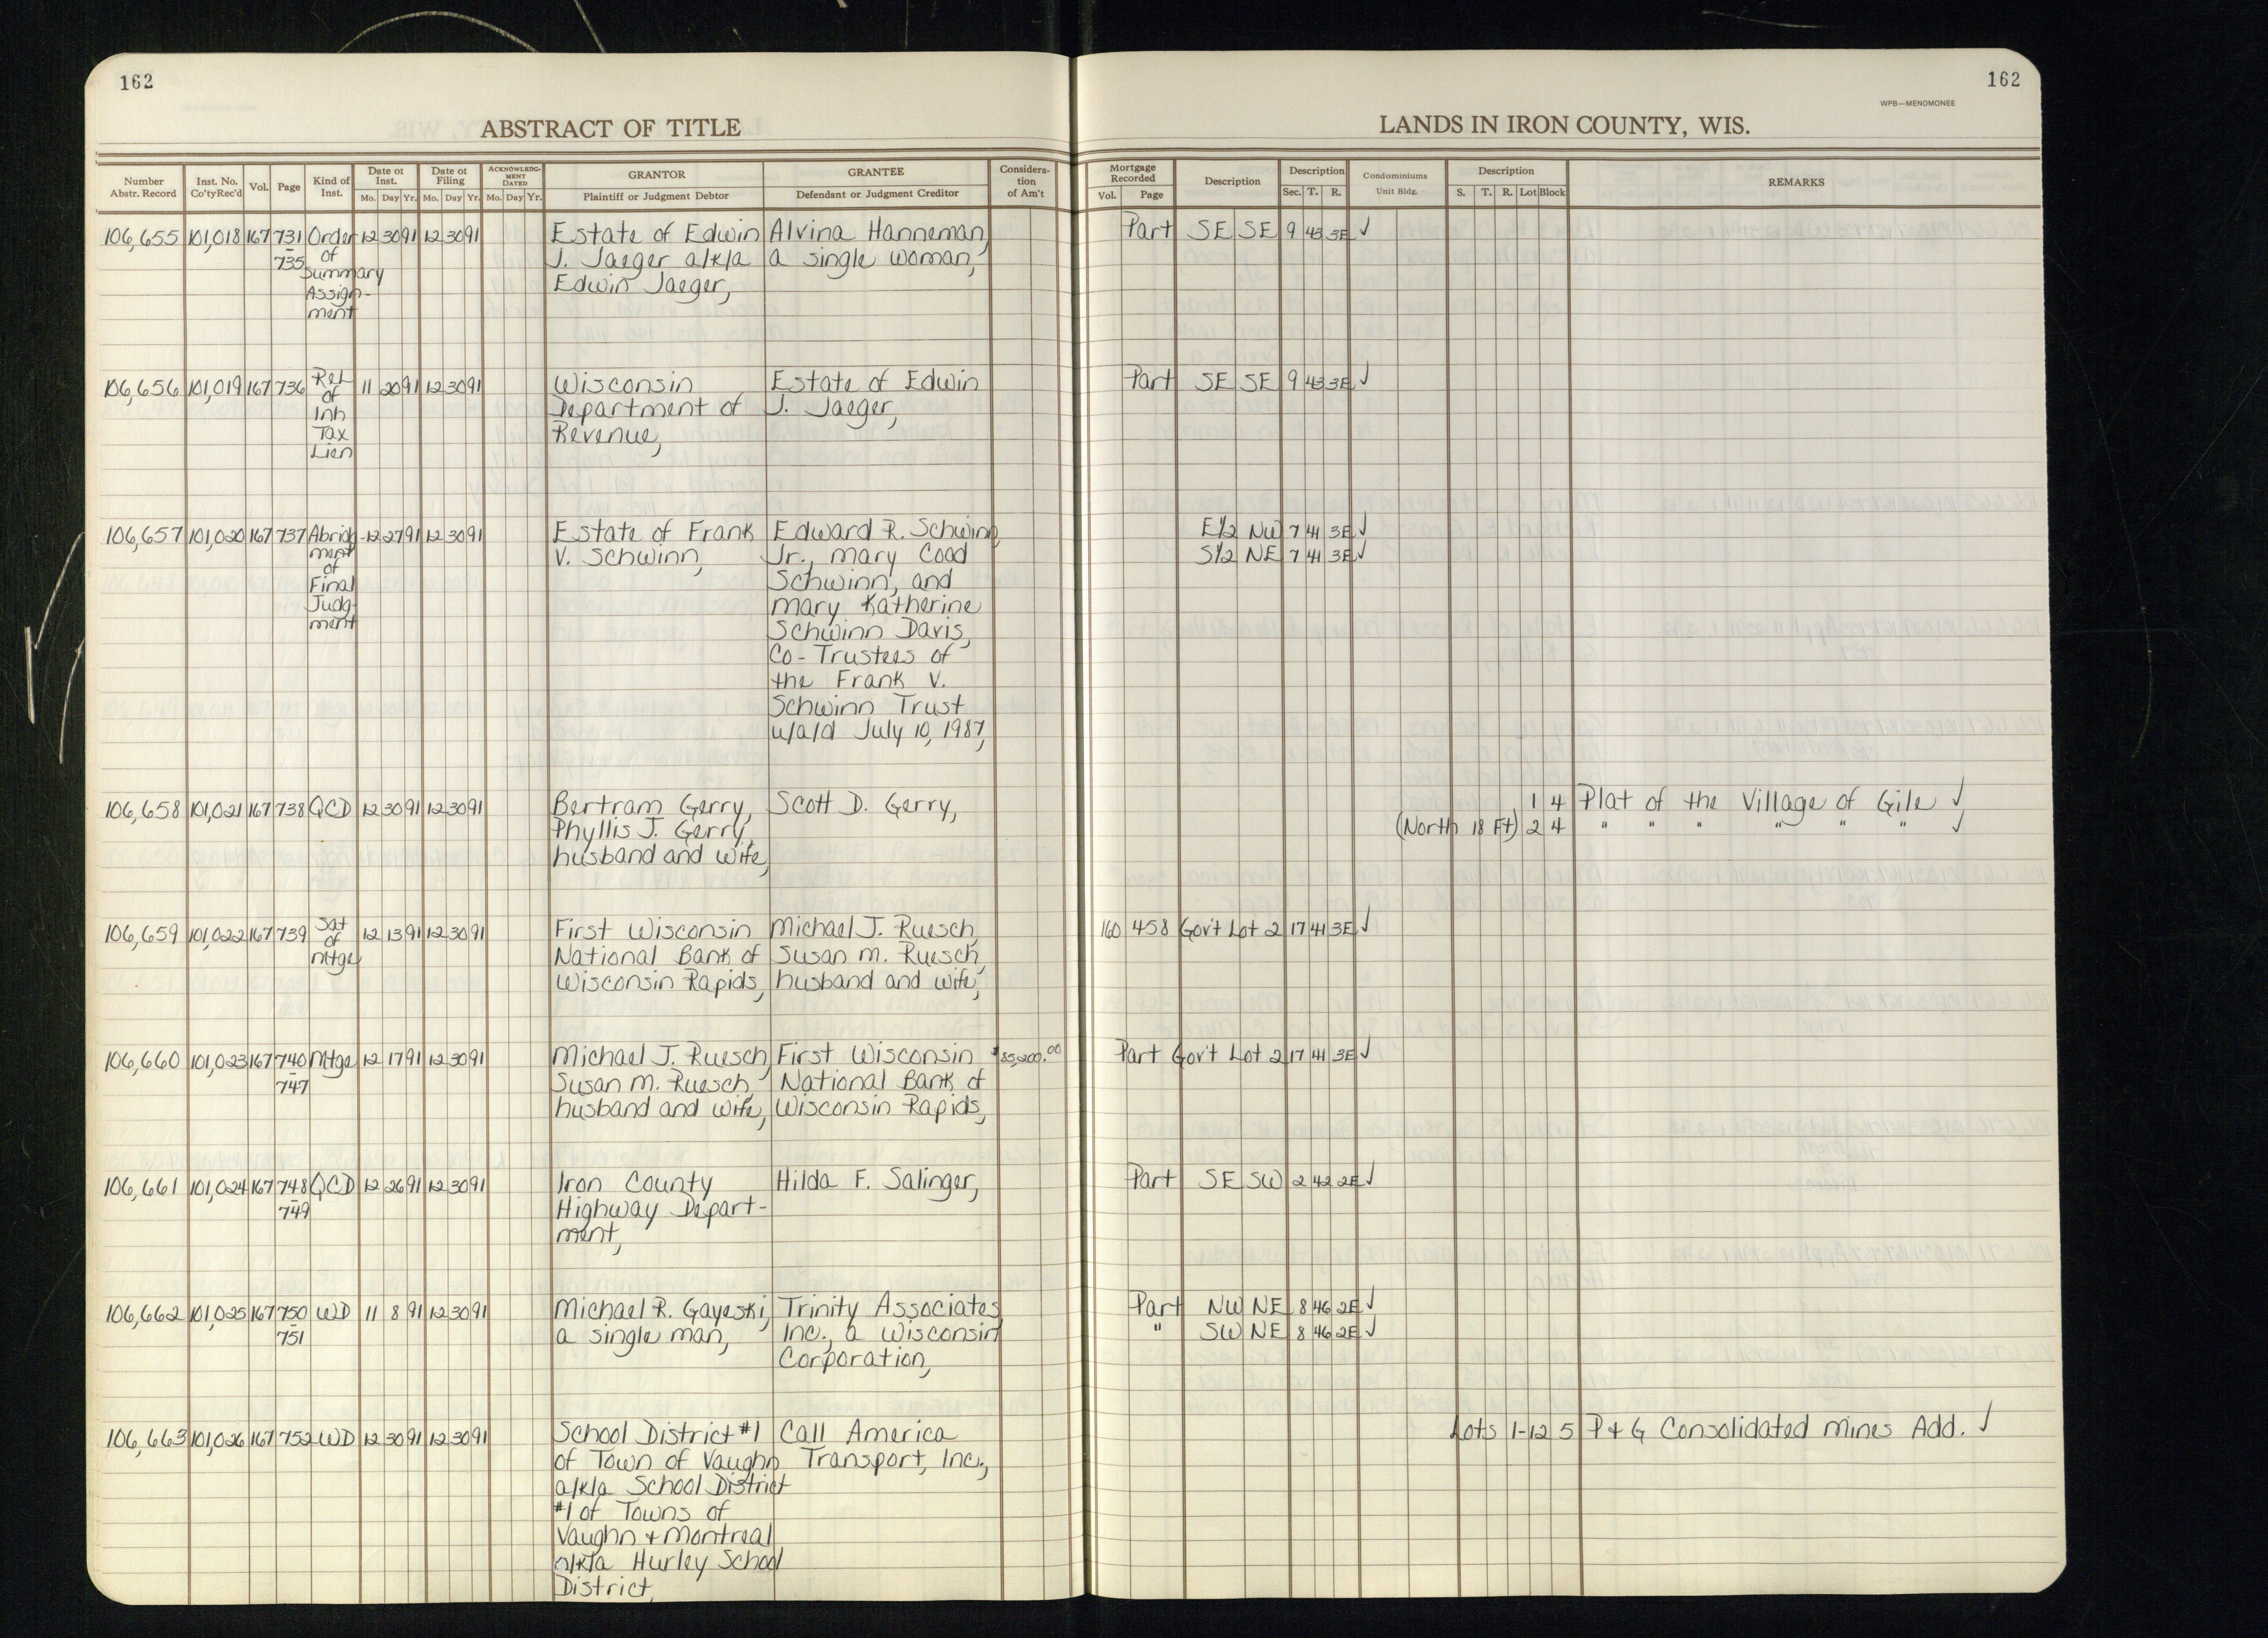 162
162
WPB—MENOMONEE
ABSTRACT OF TITLE
LANDS IN IRON COUNTY, WIS.
Number Abstr. Record Inst. No. Co'ty Rec'd Vol. Page Kind of Inst. Date of Inst. Mo. Day Yr. Date of Filing Mo. Day Yr. ACKNOWLEDGMENT DATED Mo. Day Yr. GRANTOR Plaintiff or Judgment Debtor GRANTEE Defendant or Judgment Creditor Consideration of Am't Mortgage Recorded Vol. Page Description Description Sec. T. R. Condominiums Unit Bldg. Description S. T. R. Lot Block REMARKS
106,655 101,018 167 731 Order 12 30 91 12 30 91 Estate of Edwin Alvina Hanneman, Part SE SE 9 43 3E ✓
735 of J. Jaeger a/k/a a single woman,
Summary Edwin Jaeger,
Assign-
ment
106,656 101,019 167 736 Rel 11 20 91 12 30 91 Wisconsin Estate of Edwin Part SE SE 9 43 3E ✓
of Department of J. Jaeger,
Inh Revenue,
Tax
Lien
106,657 101,020 167 737 Abridg- 12 27 91 12 30 91 Estate of Frank Edward R. Schwinn, E1/2 NW 7 41 3E ✓
ment V. Schwinn, Jr., Mary Coad S1/2 NE 7 41 3E ✓
of Schwinn, and
Final Mary Katherine
Judg- Schwinn Davis,
ment Co-Trustees of
the Frank V.
Schwinn Trust
u/a/d July 10, 1987,
106,658 101,021 167 738 QCD 12 30 91 12 30 91 Bertram Gerry, Scott D. Gerry, 1 4 Plat of the Village of Gile ✓
Phyllis J. Gerry, (North 18 Ft) 2 4 " " " " " " ✓
husband and wife,
106,659 101,022 167 739 Sat 12 13 91 12 30 91 First Wisconsin Michael J. Ruesch, 160 458 Gov't Lot 2 17 41 3E ✓
of National Bank of Susan M. Ruesch,
Mtge Wisconsin Rapids, husband and wife,
106,660 101,023 167 740 Mtge 12 17 91 12 30 91 Michael J. Ruesch, First Wisconsin $85,200.00 Part Gov't Lot 2 17 41 3E ✓
747 Susan M. Ruesch, National Bank of
husband and wife, Wisconsin Rapids,
106,661 101,024 167 748 QCD 12 26 91 12 30 91 Iron County Hilda F. Salinger, Part SE SW 2 42 2E ✓
749 Highway Depart-
ment,
106,662 101,025 167 750 WD 11 8 91 12 30 91 Michael R. Gayeski, Trinity Associates, Part NW NE 8 46 2E ✓
751 a single man, Inc., a Wisconsin " SW NE 8 46 2E ✓
Corporation,
106,663 101,026 167 752 WD 12 30 91 12 30 91 School District #1 Call America Lots 1-12 5 P + G Consolidated Mines Add. ✓
of Town of Vaughn Transport, Inc.,
a/k/a School District
#1 of Towns of
Vaughn + Montreal
a/k/a Hurley School
District,